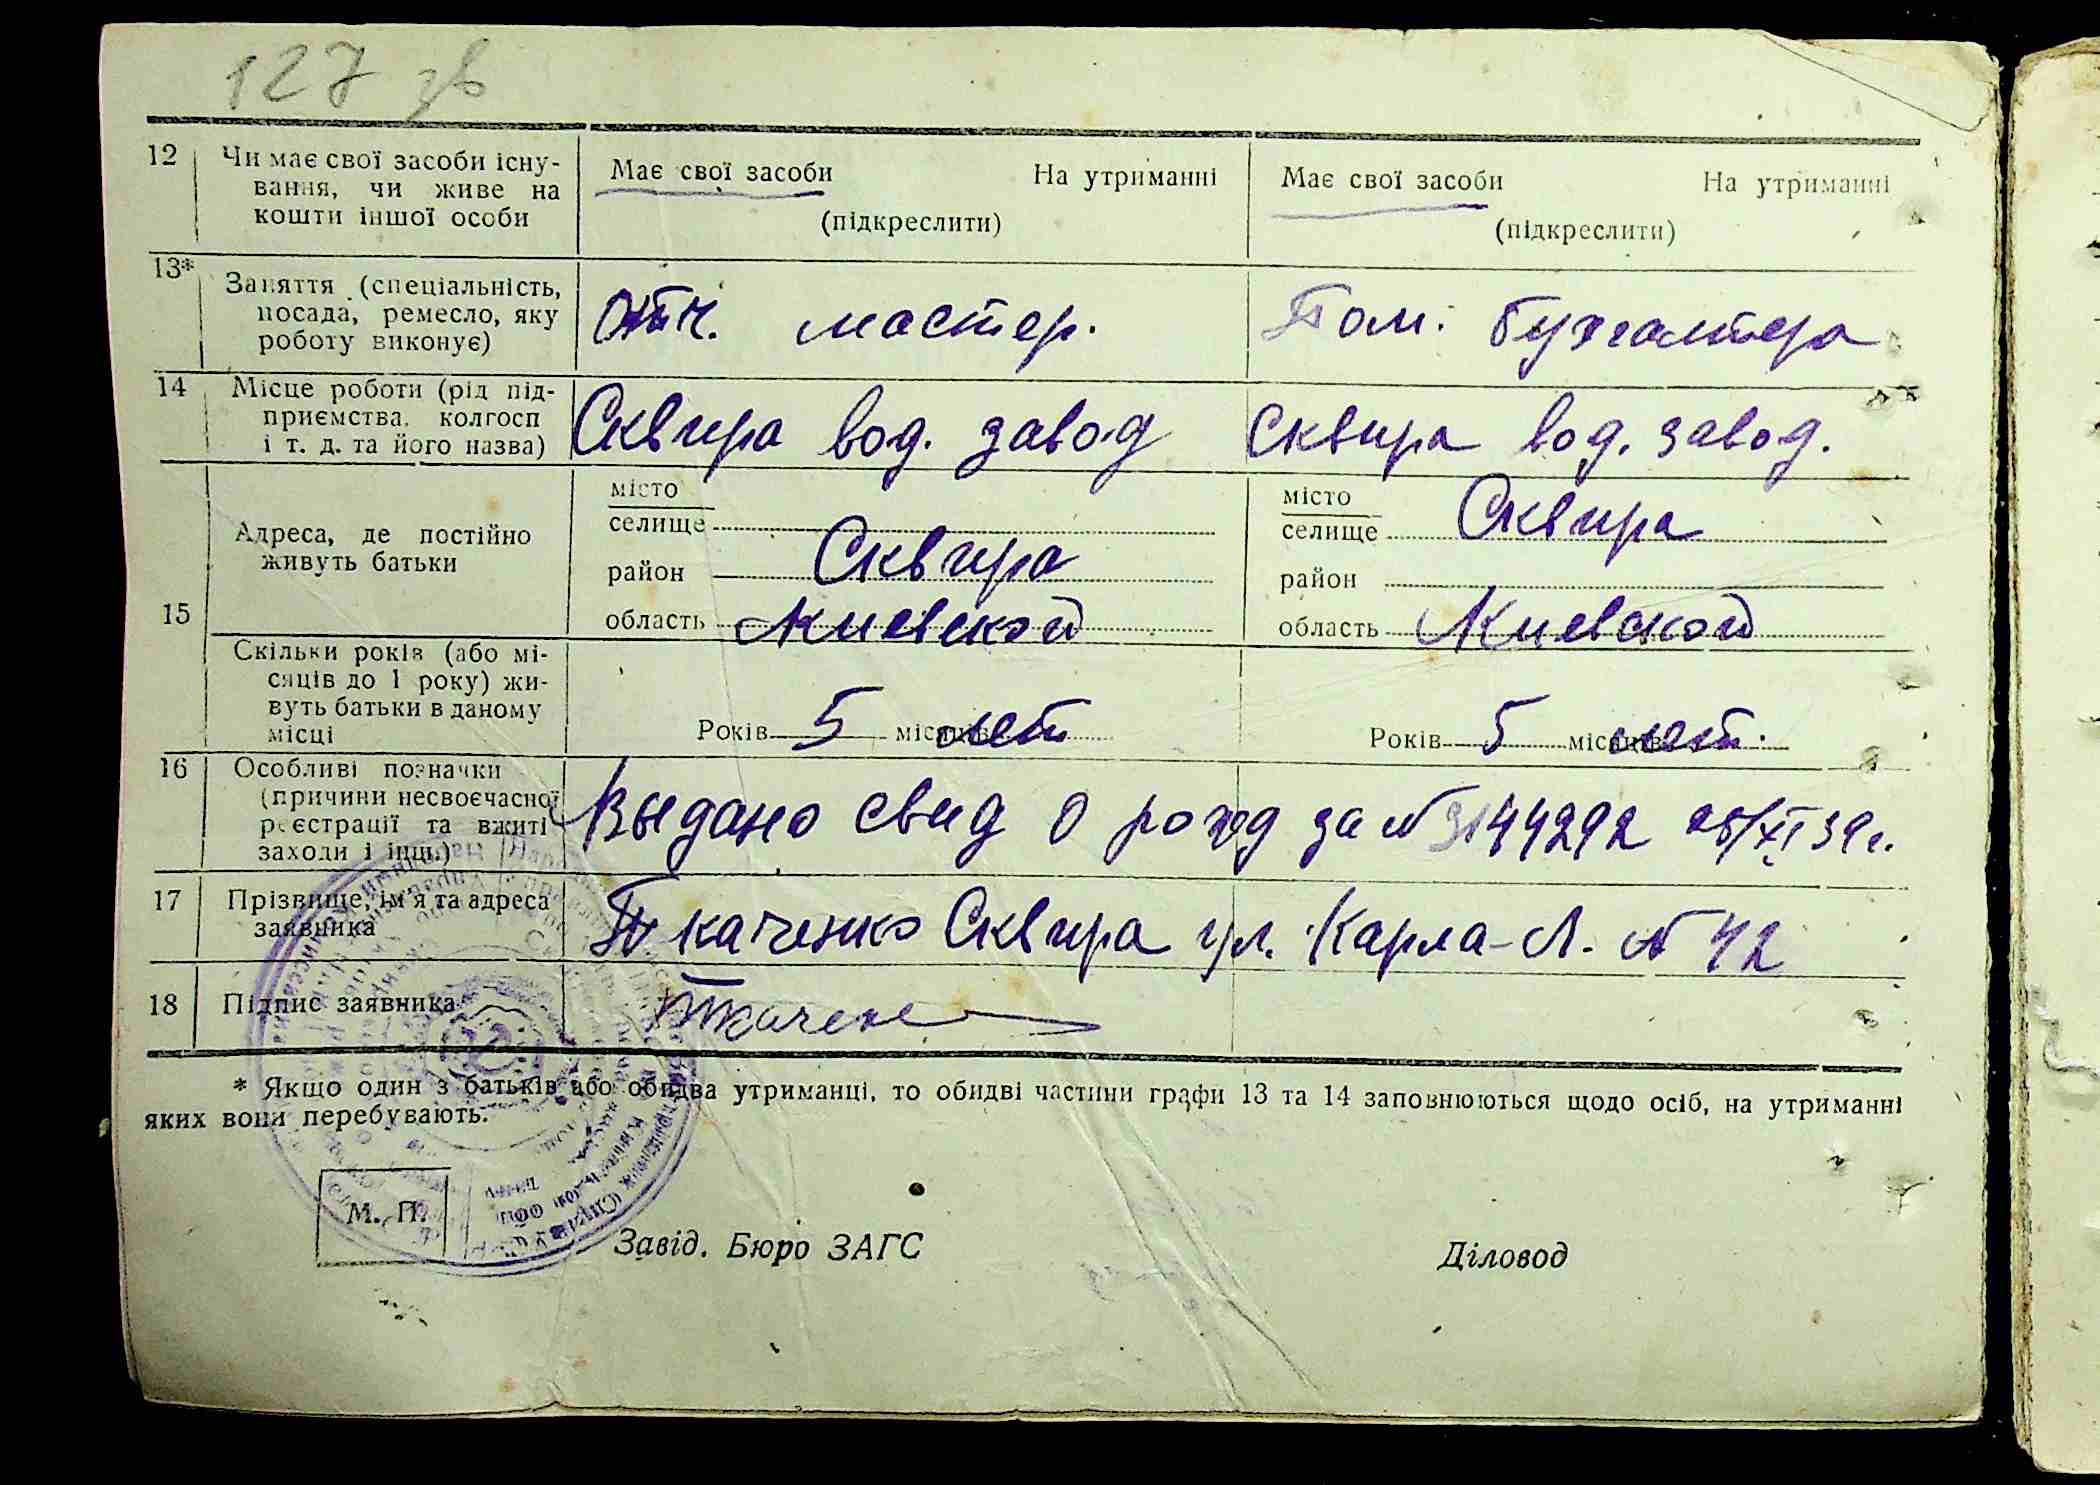 127 зв
12 Чи має свої засоби існу-
вання, чи живе на
кошти іншої особи
Має свої засоби На утриманні
(підкреслити)
Має свої засоби На утриманні
(підкреслити)
13* Заняття (спеціальність,
посада, ремесло, яку
роботу виконує)
мастер.
Пом. бухгалтера
14 Місце роботи (рід під-
приємства, колгосп
і т. д. та його назва)
Сквира вод. завод
Сквира вод. завод.
15
Адреса, де постійно
живуть батьки
місто
селище
район Сквира
область Киевской
місто
селище Сквира
район
область Киевской
Скільки років (або мі-
сяців до 1 року) жи-
вуть батьки в даному
місці
Років 5 місяців лет
Років 5 місяців лет.
16 Особливі позначки
(причини несвоєчасної
реєстрації та вжиті
заходи і інш.)
Выдано свид о рожд за № 3144292 25/XI 39 г.
17 Прізвище, ім'я та адреса
заявника
Ткаченко Сквира ул. Карла-Л. № 42
18 Підпис заявника
Ткачен
* Якщо один з батьків або обидва утриманці, то обидві частини графи 13 та 14 заповнюються щодо осіб, на утриманні
яких вони перебувають.
М. П.
Завід. Бюро ЗАГС
Діловод